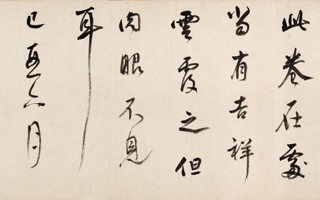 此卷在處
當有吉祥
雲覆之但
肉眼不見
耳
己亥六月